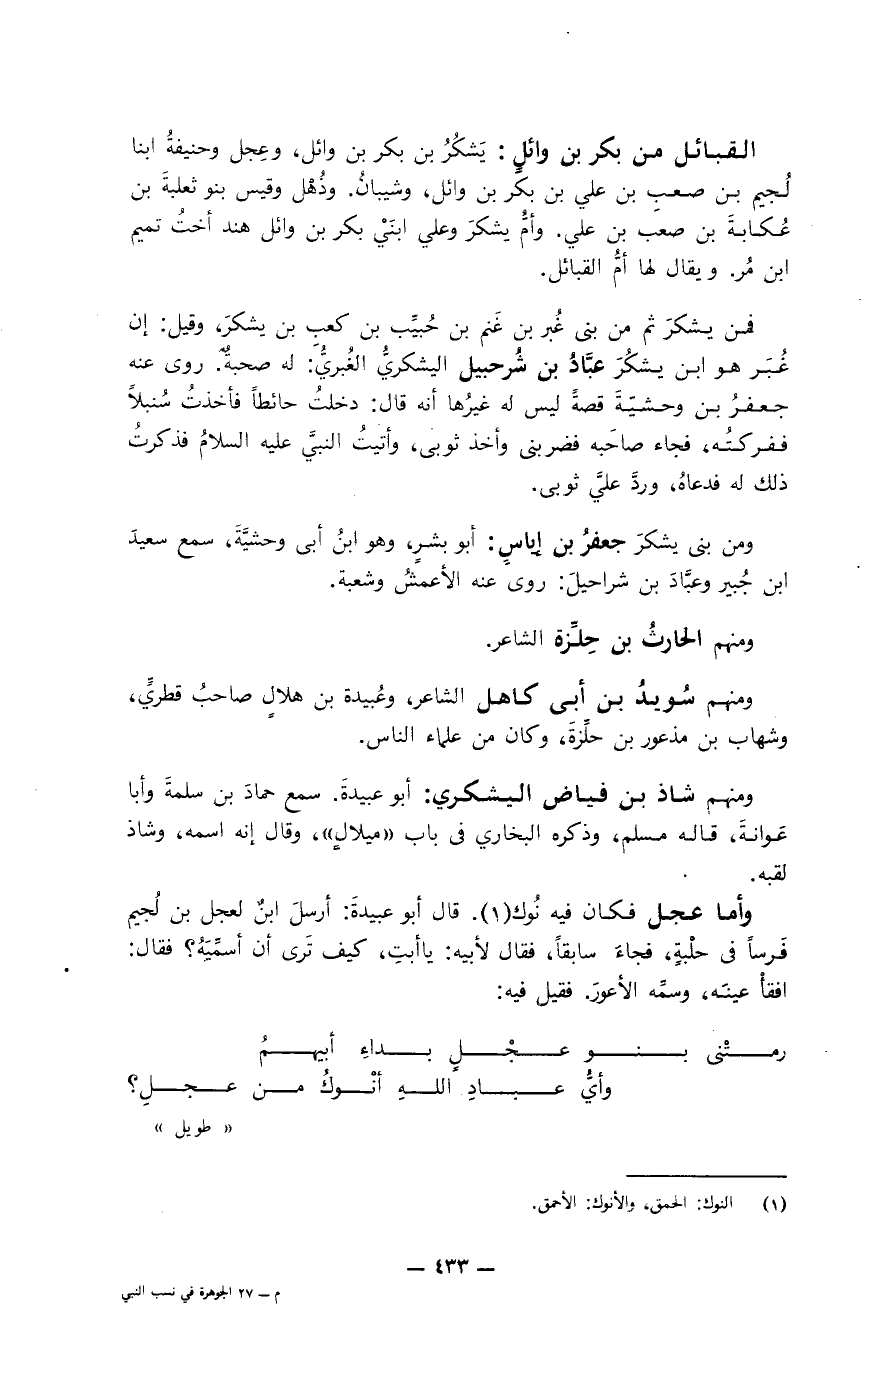 القبائل من بكر بن وائلٍ : يَشكُرُ بن بكر بن وائل، وعِجل وحنيفةُ ابنا
لُجيم بن صعبٍ بن علي بن بكْر بن وائل، وشيبانُ. وذُهْل وقيس بنو ثعلبةَ بن
عُكابةَ بن صعب بن علي. وأمُّ يشكرَ وعلي ابنَيْ بكر بن وائل هند أختُ تميم
ابن مُر. ويقال لها أمُّ القبائل.
فمن يشكرَ ثم من بنى غُبر بن غَنم بن حُبيِّب بن كعبٍ بن يشكرَ، وقيل: إن
غُبَر هو ابن يشكُرَ عبَّادُ بن شُرحبيل اليشكريُّ الغُبريُّ: له صحبةٌ. روى عنه
جعفرُ بن وحشيّةَ قصةً ليس له غيرُها أنه قال: دخلتُ حائطاً فأخذتُ سُنبلاً
ففركتُه، فجاء صاحَبه فضربنى وأخذ ثوبى، وأتيتُ النبيَّ عليه السلامُ فذكرتُ
ذلك له فدعاهُ، وردَّ عليَّ ثوبى.
ومن بنى يشكرَ جعفرُ بن إياسٍ: أبو بشرٍ، وهو ابنُ أبى وحشيَّةَ، سمع سعيدَ
ابن جُبير وعبَّادَ بن شراحيلَ: روى عنه الأعمشُ وشعبة.
ومنهم الحارثُ بن حِلِّزة الشاعر.
ومنهم سُويدُ بن أبى كاهل الشاعر، وعُبيدة بن هلالٍ صاحبُ قطريٍّ،
وشهاب بن مذعور بن حلِّزةَ، وكان من علماء الناس.
ومنهم شاذ بن فياض اليشكري: أبو عبيدةَ. سمع حمادَ بن سلمةَ وأبا
عَوانةَ، قاله مسلم، وذكره البخاري فى باب «ميلالٍ»، وقال إنه اسمه، وشاذ
لقبه.
وأما عجل فكان فيه نُوك(١). قال أبو عبيدةَ: أرسلَ ابنٌ لعجل بن لُجيم
فَرساً فى حلْبةٍ، فجاءَ سابقاً، فقال لأبيه: ياأبتِ، كيف تَرى أن أسمِّيَهُ؟ فقال:
افقأْ عينَه، وسمِّه الأعورَ. فقيل فيه:
رمــتْنى بــنــو عــجْــلٍ بــداءِ أبيهــمُ
وأيُّ عــبــادِ اللــهِ أنْــوكُ مــن عــجــلِ؟
« طويل »
(١) النوك: الحمق، والأنوك: الأحمق.
— ٤٣٣ —
م — ٢٧ الجوهرة في نسب النبي